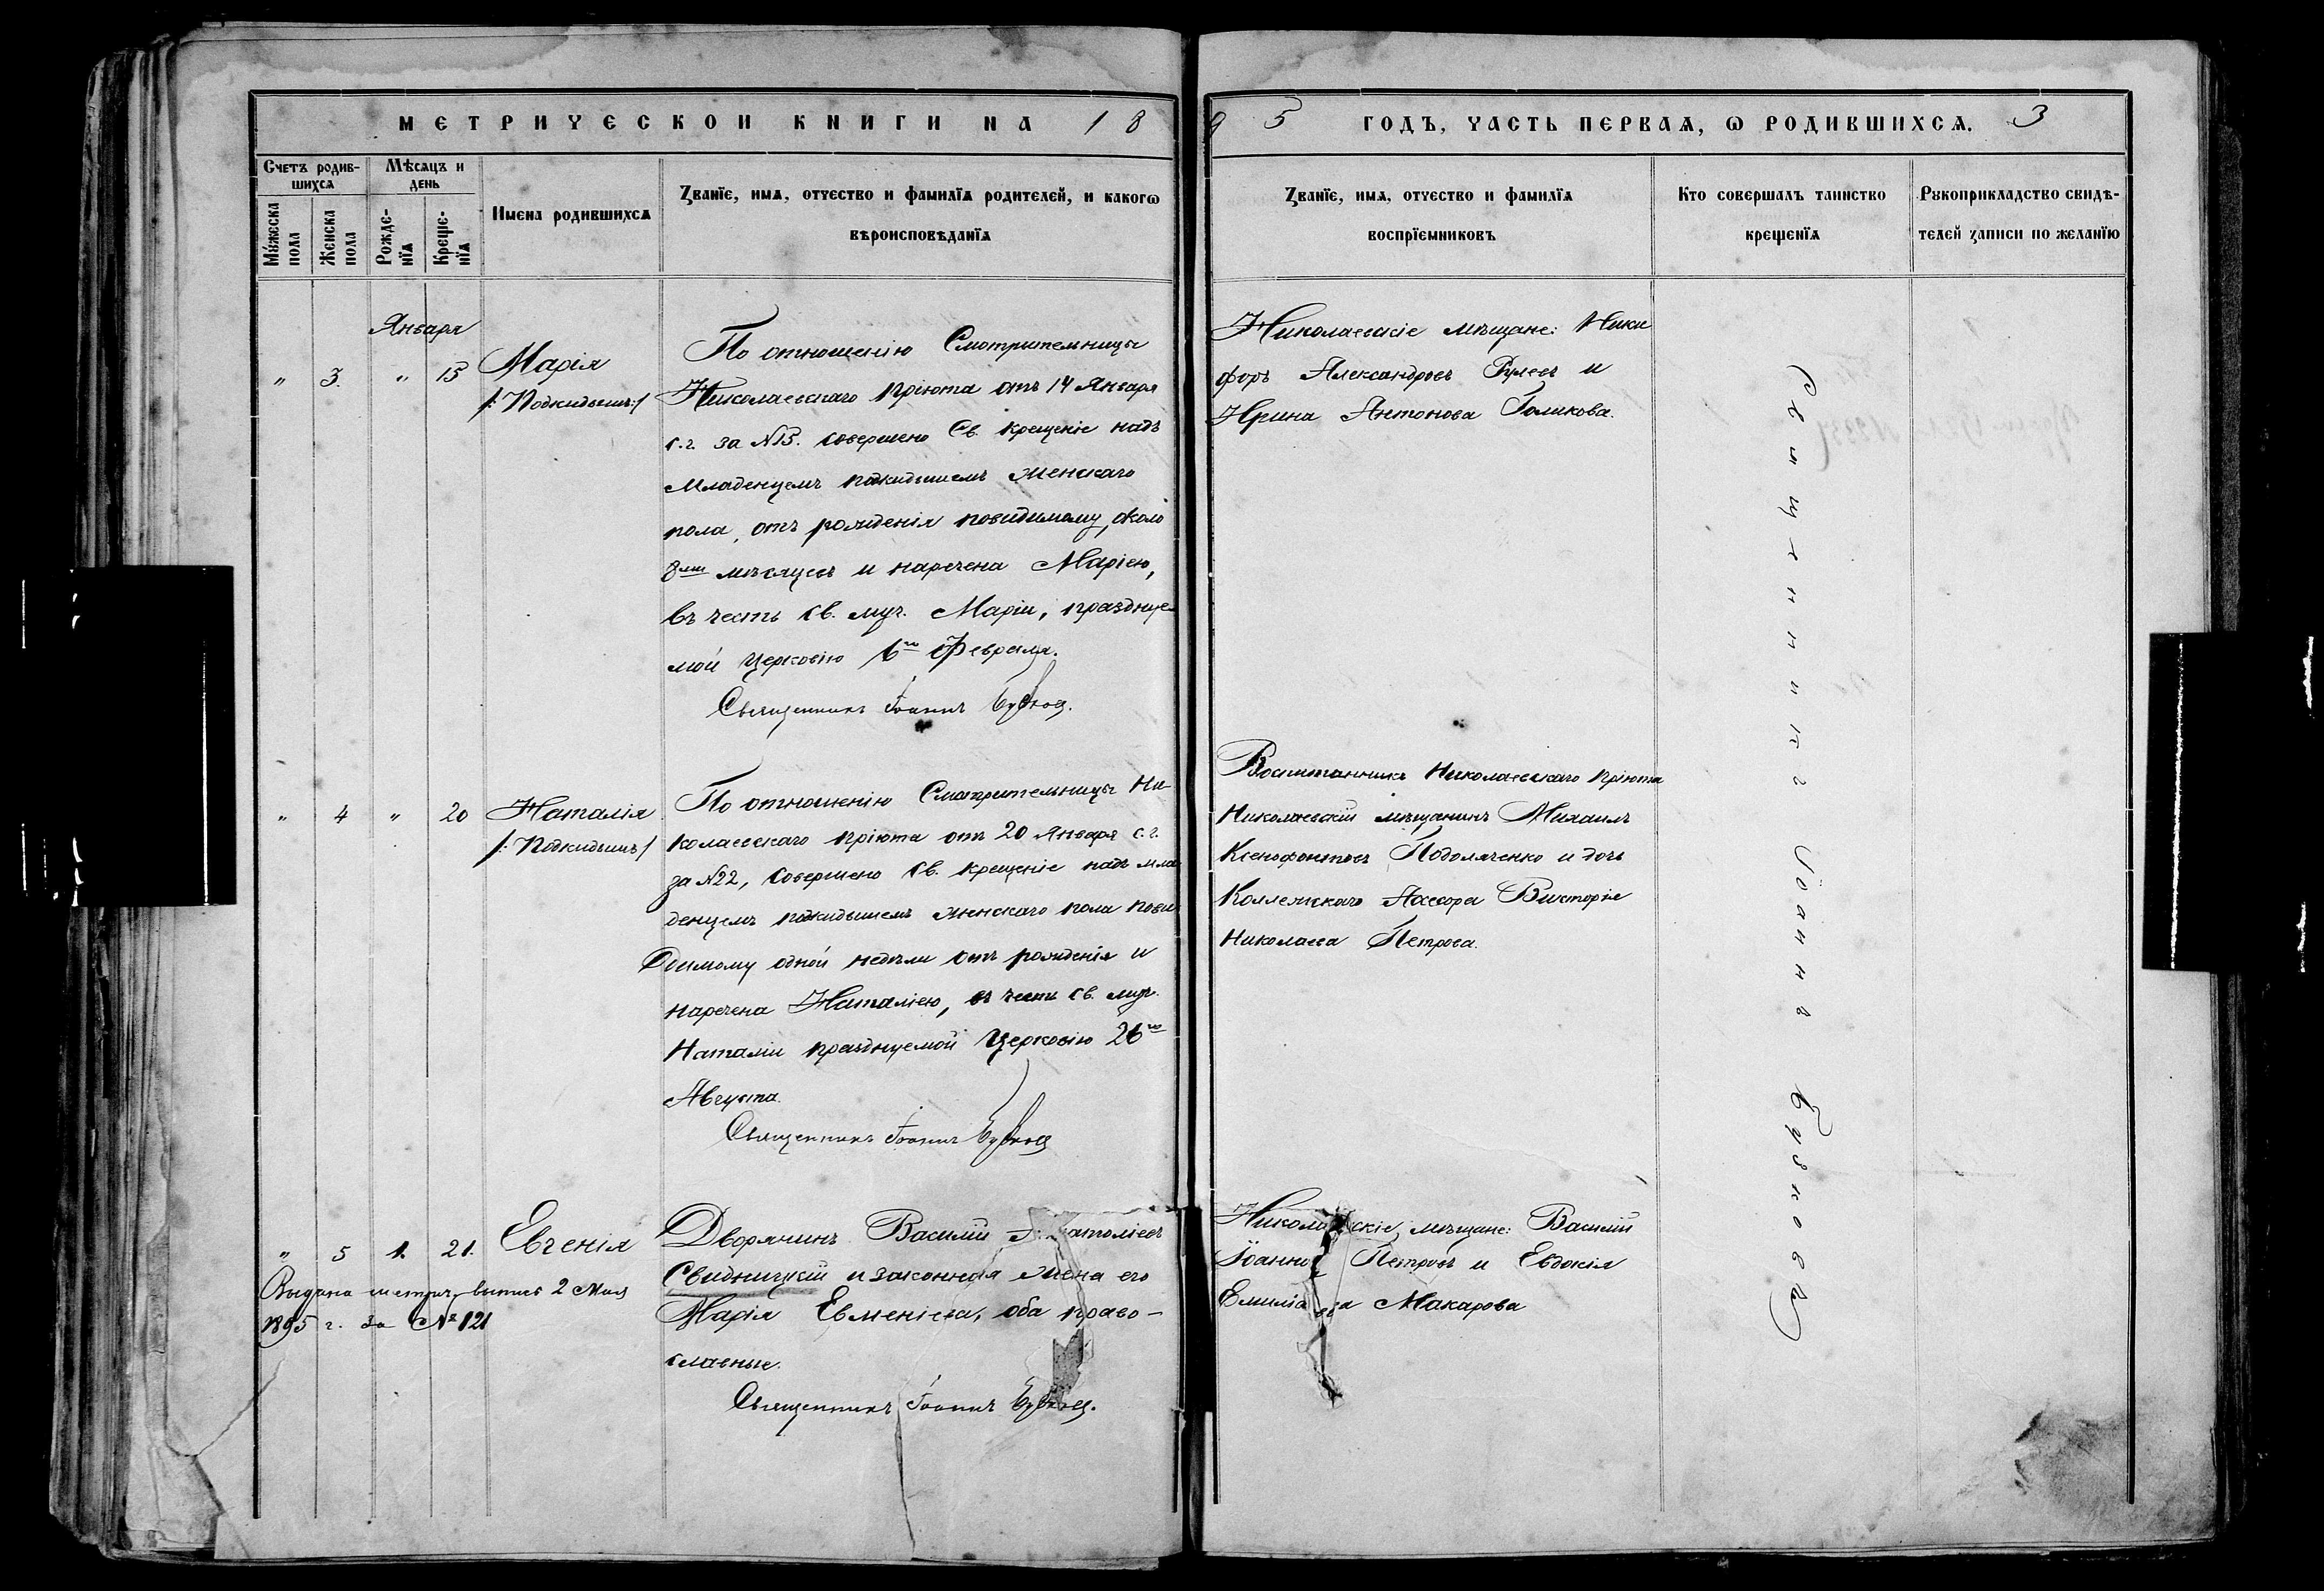 МЕТРИЧЕСКОЙ КНИГИ НА 1895 ГОДЪ, ЧАСТЬ ПЕРВАЯ, Ѡ РОДИВШИХСЯ. 3
Счетъ родив-
шихся
Мѣсяцъ и
день
Мужеска
пола
Женска
пола
Рожде-
нїя
Креще-
нїя
Имена родившихся
Званїе, имя, отчество и фамилїя родителей, и какогѡ
вѣроисповѣданїя
Званїе, имя, отчество и фамилїя
воспрїемниковъ
Кто совершалъ таинство
крещенїя
Рукоприкладство свидѣ-
телей записи по желанїю
Января
" 3. " 15
Марія
/:Подкидышъ:/
По отношенію Смотрительницы
Николаевскаго пріюта отъ 14 Января
с.г. за №15. совершено Св. крещеніе надъ
младенцемъ подкидышемъ женскаго
пола, отъ рожденія повидимому, около
8ми мѣсяцевъ и наречена Маріею,
въ честь св. муч. Маріи, празднуе-
мой Церковію 6го Февраля.
Священникъ Іоаннъ
Николаевскіе мѣщане: Ники
форъ Александровъ Рулевъ и
Ирина Антонова Голикова.
" 4 " 20
Наталія
/:Подкидышъ/
По отношенію Смотрительницы Ни-
колаевскаго пріюта отъ 20 Января с.г.
за №22, совершено Св. крещеніе надъ мла
денцемъ подкидышемъ женскаго пола пови
димому одной недѣли отъ рожденія и
наречена Наталіею, въ честь св. муч.
Наталіи празднуемой Церковію 26го
Августа.
Священникъ Іоаннъ
Воспитанникъ Николаевскаго пріюта
Николаевскій мѣщанинъ Михаилъ
Ксенофонтовъ Подоляченко и дочь
Коллежскаго Ассесора Викторія
Николаева Петрова.
" 5 1. 21.
Евгенія
Выдана метрич. выпись 2 Мая
1895 г. за № 121
Дворянинъ Василій Анатоліевъ
Свидницкій и законная жена его
Марія Евменіева, оба право-
славные.
Священникъ Іоаннъ
Николаевскіе мѣщане: Василій
Іоанновъ Петровъ и Евдокія
Емиліанова Макарова
Священникъ Іоаннъ